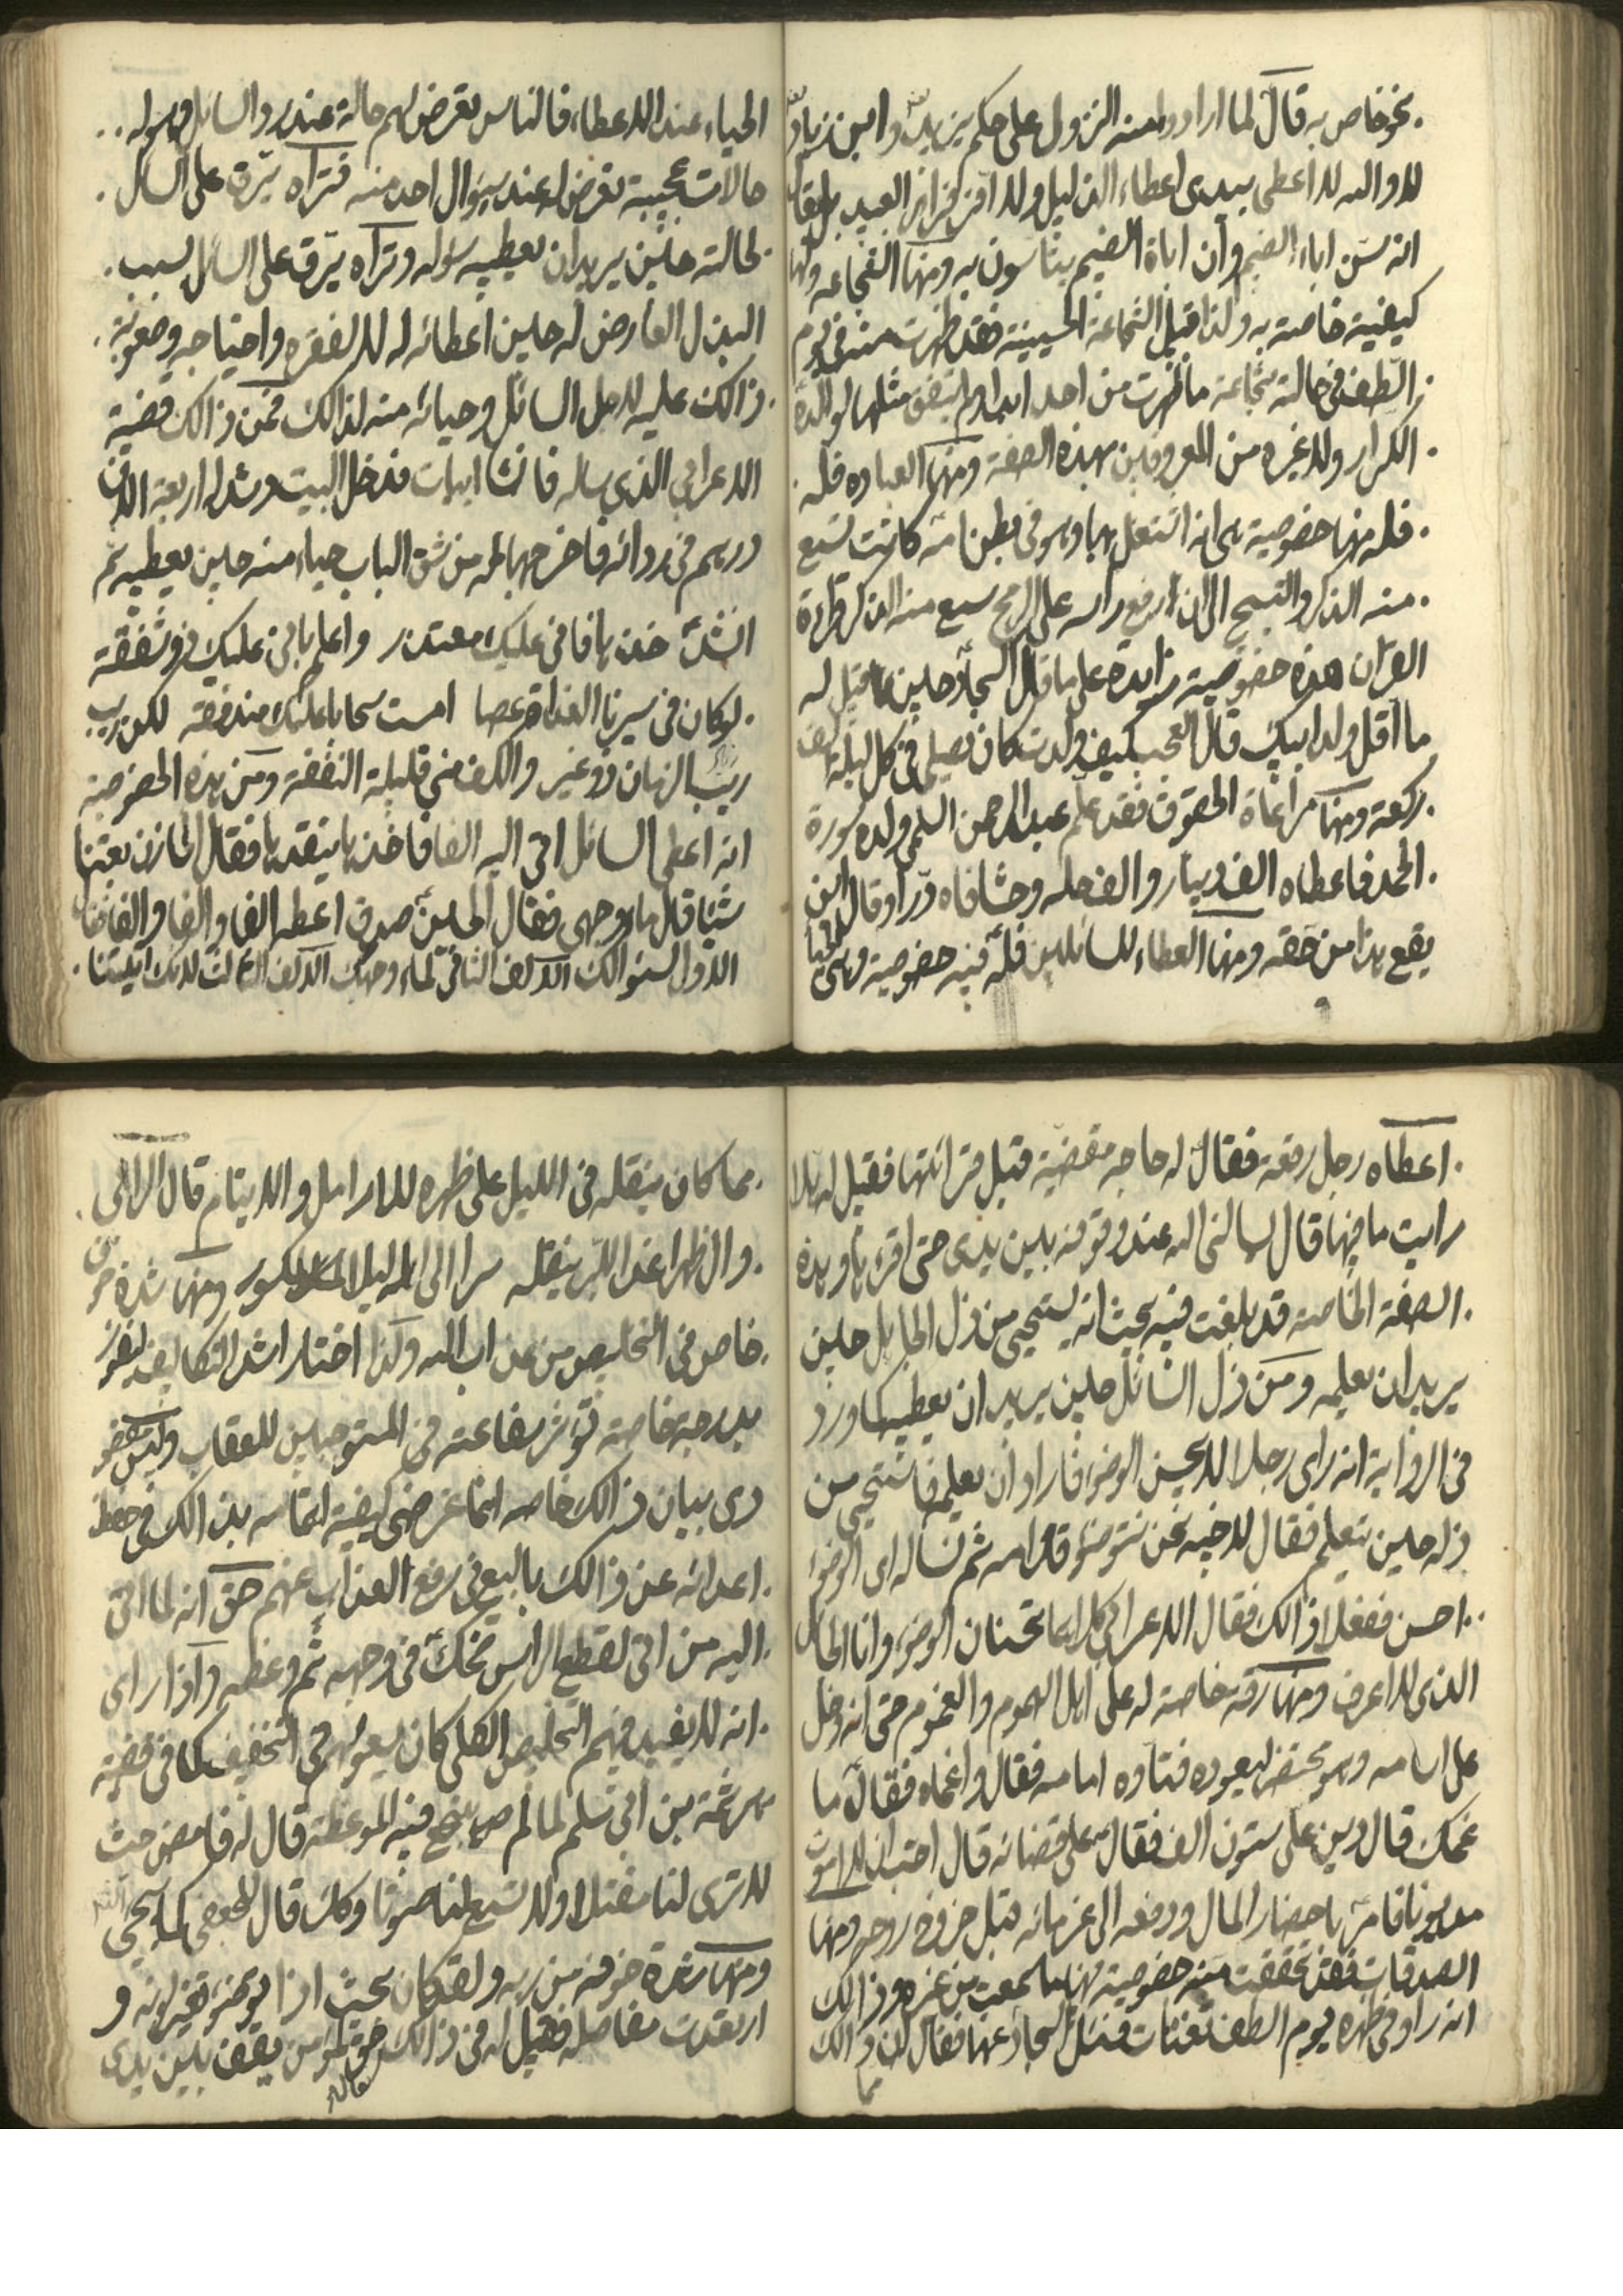 بنحو خاص به قال لما ارادوا منه النزول على حكم يزيد وابن زياد
لا والله لا اعطى بيدى اعطاء الذليل ولا اقر اقرار العبيد
انه سن اباء الضيم وان اباة الضيم يتاسون به ومنها الشجاعه ولها
كيفية خاصة به ولذا قيل الشجاعة الحسينية فقد ظهرت منه فى يوم
الطف فى حالة شجاعة ما ظهرت من احد ابدا ولم يتفق مثلها لوالده
الكرار ولا غيره من المعروفين بهذه الصفة ومنها العباده فله
فله منها خصوصية هى انه اشتغل بها وهو فى بطن امه كانت تسمع
منه الذكر والتسبيح الى ان رفع راسه على الرمح سمع منه الذكر وقراءة
القران هذه خصوصية زايدة على ما قال السجاد حين ما قيل له
ما اقل ولد ابيك قال العجب كيف ولدت كان يصلى فى كل ليلة الف
ركعة ومنها مراعاة الحقوق فقد علم عبد الرحمن السلمى ولده سورة
الحمد فاعطاه الف دينار والف حله وحشا فاه درا وقال اين
يقع هذا من حقه ومنها العطاء للسائلين فله فيه خصوصية وهى الحيا
الحياء عند الاعطاء فالناس تعرض لهم حالة عند رد السائل وهو له
حالات عجيبة تعرض له عند سؤال احد منه فتراه يترق على السائل
لحالته حين يريد ان يعطيه سؤله وتراه يترق على السائل بسبب
البذل العارض له حين اعطائه له لا لفقره واحتياجه وصعوبة
ذالك عليه لاجل السائل وحيائه منه لذالك فمن ذالك قضية
الاعرابي الذي ساله فانشا ابيات فدخل البيت وشد له اربعة الاف
درهم فى ردائه فاخرجها له من شق الباب حياء منه حين يعطيه ثم
انشد خذها فانى عليك معتذر واعلم بانى عليك ذو شفقة
لو كان فى سيرنا الغداة عصا امست سحابا عليك مندفقة لكن ريب
ريب الزمان ذو غير والكف منى قليلة النفقة ومن هذه الخصوصية
انه اعطى السائل اتى اليه الفا فاخذها ينقدها فقال الخازن بعتنا
شيئا قال ماء وجهى فقال الحسين صدق اعطه الفا والفا والفا
الاول لسؤالك الالف الثانى لماء وجهك الالف الثالث لانك اتيتنا
اعطاه رجل رقعة فقال له حاجه مقضية قبل قرائتها فقيل له هلا
رايت ما فيها قال يسالنى الله عند وقوفه بين يدى حتى اقرءها وهذه
الصفة الخاصة قد بلغت فيه بحيث انه يستحيى من ذل الجاهل حين
يريد ان يعلمه ومن ذل السائل حين يريد ان يعطيه كما ورد
فى الرواية انه راى رجلا لا يحسن الوضوء فاراد ان يعلمه فاستحيى من
ذله حين يتعلم فقال لاخيه نحن نتوضؤ قدامه ثم نساله اى الوضوء
احسن ففعلا ذالك فقال الاعرابي كلاكما تحسنان الوضوء وانا الجاهل
الذى لا اعرف ومنها رقه خاصة له على اهل الهموم والغموم حتى انه دخل
على اسامه وهو محتضر ليعوده فتاوه امامه فقال واغماه فقال ما
غمك قال دين على ستون الف فقال على قضائه قال احب ان لا اموت
مديونا فامر باحضار المال ودفعه الى غرمائه قبل خروج روحه ومنها
الصدقات فقد تحققت منه خصوصية بها ما سمعت من غيره وذالك
انه راو فى ظهره يوم الطف ثفنات فسئل السجاد عنها فقال ان ذالك
مما
مما كان ينقله فى الليل على ظهره للارامل والايتام قال الراثى
وان ظهرا غدا للبر ينقله سرا الى اهله ليلا لمكسور ومنها شدة حزن
خاص فى التخليص من عذاب الله ولذا اختار اشد التكاليف ليفوز
بدرجة خاصة تؤثر شفاعته فى المستوجبين للعقاب وليس مقصو
دى بيان ذالك خاصه انما غرضى كيفية اهتمامه بذالك فى حفظ
اعدائه عن ذالك بالسعى فى رفع العذاب عنهم حتى انه لما اتى
اليه من اتى لقطع الراس ضحك فى وجهه ثم وعظه واذا راى
انه لا يفيد فيهم التخليص الكلى كان يسعى لهم فى التخفيف كما فى قضية
هرثمة بن ابى مسلم لما لم ينجع فيه الموعظة قال له فامض حيث
لا ترى لنا مقتلا ولا تسمع لنا صوتا وكك قال للجعفى لما سيجئ
ومنها شدة خوفه من ربه ولقد كان بحيث اذا توضؤ تغير لونه و
ارتعدت مفاصله فقيل له فى ذالك فقال حق لمؤمن يقف بين يدى